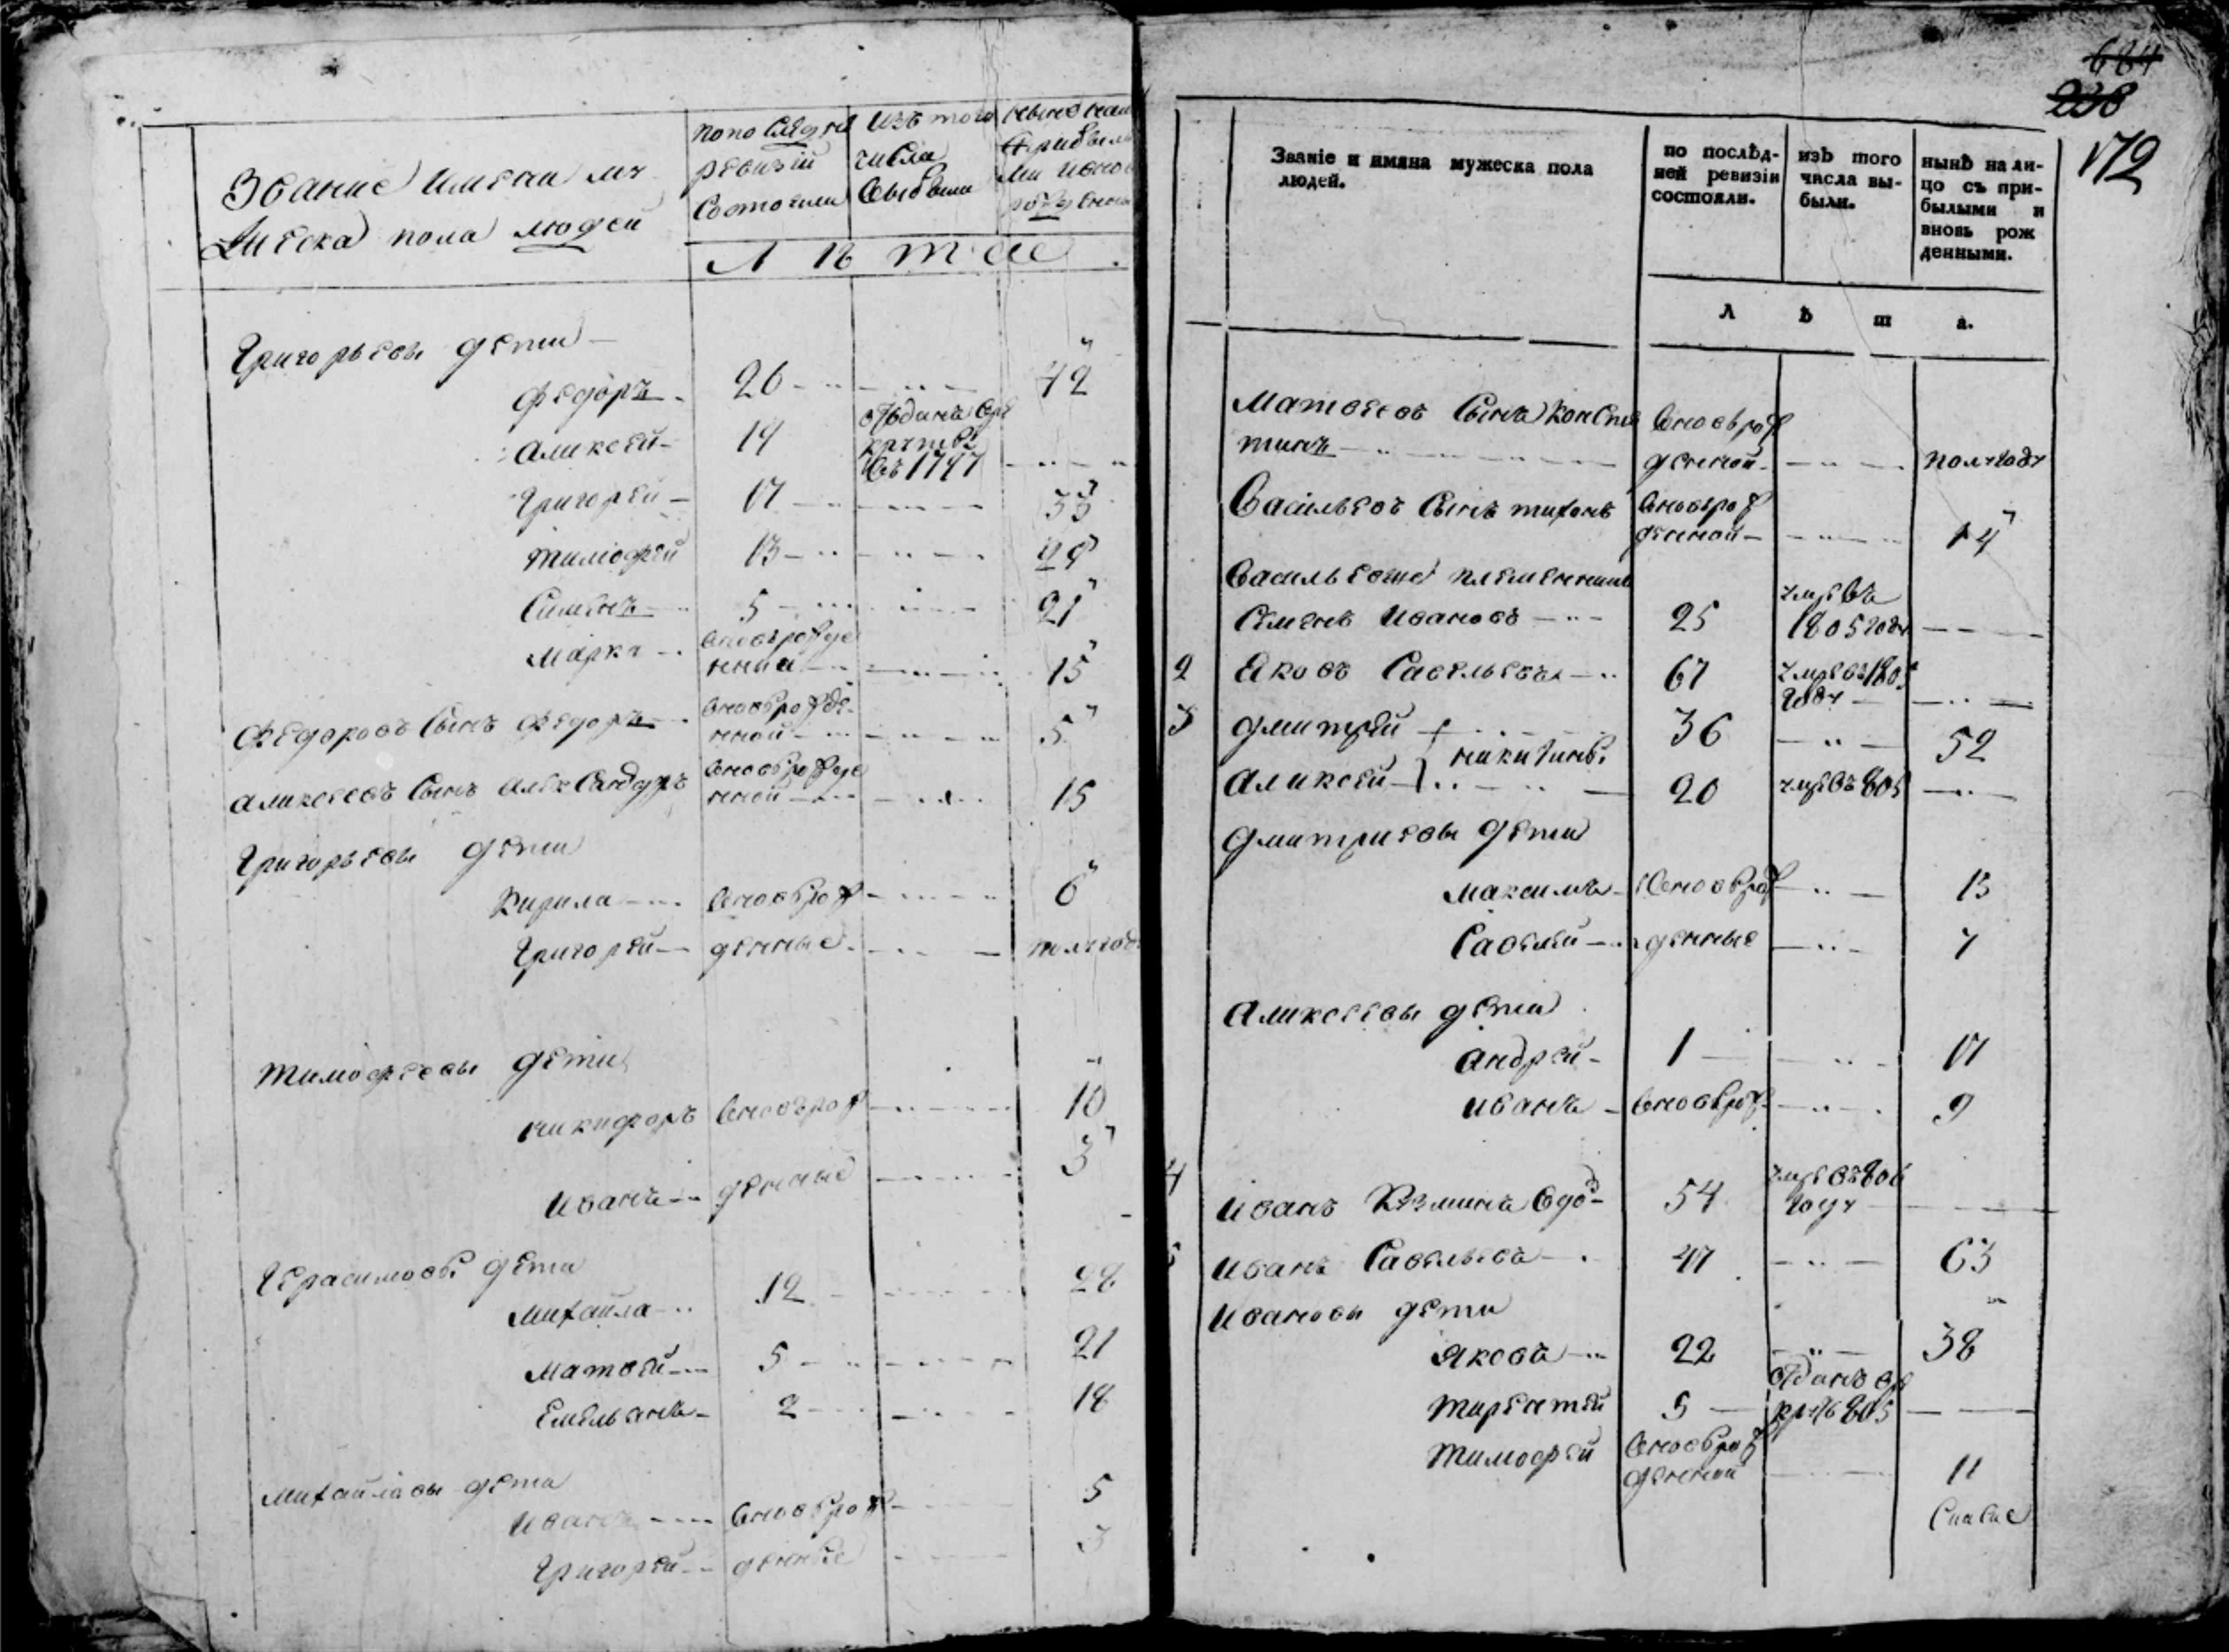 Звание имена му
жеска пола людей
по последней
ревизіи
состояли
изъ того
числа
выбыли
лѣта
Григорьевы дети
Федоръ 26 42
Аликсей 19 отданъ в ре
круты
въ 1797
Григорей 17 33
Тимофей 13 29
Симіонъ 5 21
Марка вновърожде
ннна 15
Федоровъ сынъ Федоръ вновърожде
нной 5
Аликсеевъ сынъ Александръ вновърожде
нной 15
Григорьевы дети
Кирила вновърож 6
Григорей денные полгода
Тимофеевы дети
Никифоръ вновърож 10
Иванъ денные 3
Герасимовы дети
Михайла 12 28
Матвей 5 21
Емельянъ 2 18
Михайловы дети
Иванъ вновърож 5
Григорей денные 3
684
238
172
Званіе и имяна мужеска пола
людей.
по послѣд-
ней ревизіи
состояли.
изъ того
числа вы-
были.
нынѣ на ли-
цо съ при-
былыми и
вновь рож
денными.
Л ѣ т а.
Матвеевъ сынъ Конста вновърож
тинъ денной полугоду
Васильевъ сынъ Тихонъ вновърож
денной 14
Васильевы племянники
Семенъ Ивановъ 25 умре въ
1805 году
2 Яковъ Савельевъ 67 умре въ 180
году
3 Дмитрей 36 52
Никитины
Аликсей 20 умре въ 805
Дмитриевы дети
Максимъ вновърож 13
Савелей денные 7
Аликсеевы дети
Андрей 1 17
Иванъ вновърож 9
4 Иванъ Кузминъ вдо 54 умре въ 806
году
Иванъ Савельевъ 47 63
Ивановы дети
Яковъ 22 38
Тиреньтей 5 отданъ в
рекру 805
Тимофей вновърож
денной 11